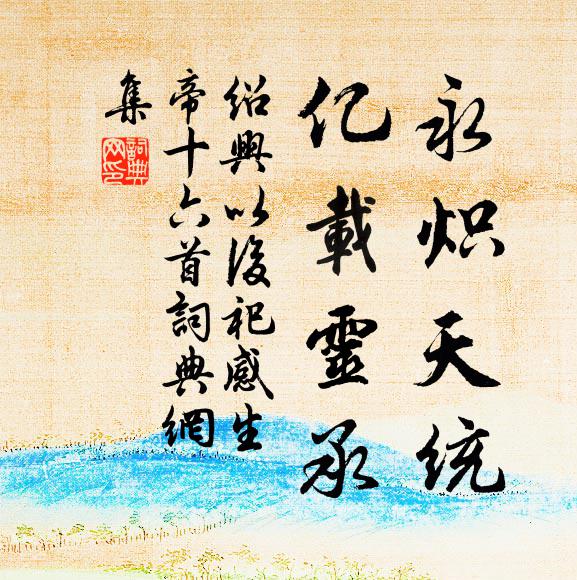 永炽天统
亿載靈承
绍興以後祀感生
帝十六首詞典網
集
詞典
网印